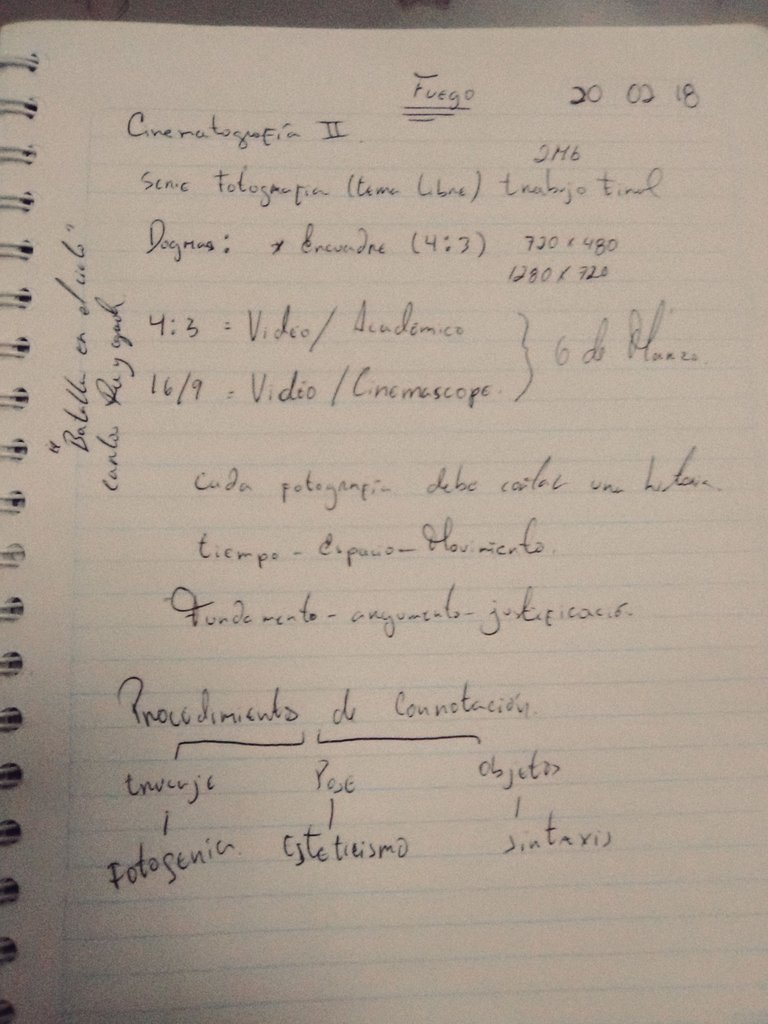 Fuego 20 02 18
Cinematografía II
2Mb
Serie fotografia (tema libre) trabajo final
Dogmas: * Encuadre (4:3) 720 x 480
1280 x 720
4:3 = Video/ Académico
16/9 = Video /Cinemascope.
6 de Marzo.
"Batalla en el cielo"
Carlos Reygad
Cada fotografía debe contar una historia
tiempo - Espacio - Movimiento.
Fundamento - argumento - justificación
Procedimiento de Connotación.
trucaje Pose Objetos
Fotogenia. Esteticismo sintaxis